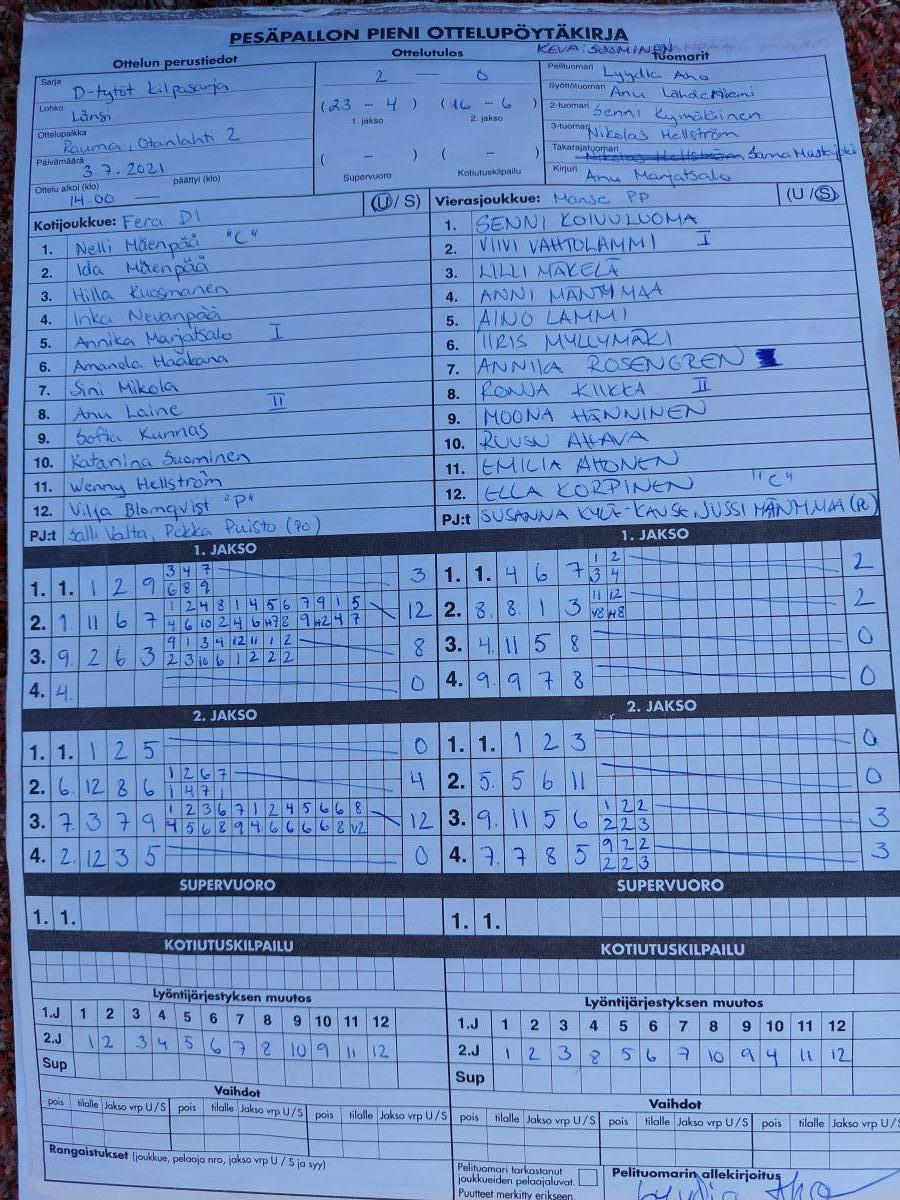 PESÄPALLON PIENI OTTELUPÖYTÄKIRJA
Ottelun perustiedot
Sarja D-tytöt kilpasarja
Lohko Länsi
Ottelupaikka Rauma, Otanlahti 2
Päivämäärä 3.7.2021
Ottelu alkoi (klo) päättyi (klo)
14.00 —
Ottelutulos
2 — 0
(23 - 4) (16 - 6)
1. jakso 2. jakso
( - ) ( - )
Supervuoro Kotiutuskilpailu
KEVA: SUOMINEN
Tuomarit
Pelituomari Lyydia Aho
Syöttötuomari Anu Lähdeniemi
2-tuomari Senni Kymäläinen
3-tuomari Nikolas Hellström
Takarajatuomari Nikolas Hellström, Sanna
Kirjuri Anu Marjatsalo
Kotijoukkue: Fera D1 (U / S)
1. Nelli Mäenpää "C"
2. Ida Mäenpää
3. Hilla Kuosmanen
4. Inka Nevanpää
5. Annika Marjatsalo I
6. Amanda Haakana
7. Sini Mikola
8. Anu Laine II
9. Sofia Kunnas
10. Katariina Suominen
11. Wenny Hellström
12. Vilja Blomqvist "P"
PJ:t Salli Valta, Pekka Puisto (PO)
Vierasjoukkue: Manse PP (U / S)
1. SENNI KOIVULUOMA
2. VIIVI VAHTOLAMMI I
3. LILLI MÄKELÄ
4. ANNI MÄNTYMAA
5. AINO LAMMI
6. IIRIS MYLLYMÄKI
7. ANNIKA ROSENGREN
8. RONJA KIIKKA II
9. MOONA HÄNNINEN
10. RUUSU AHAVA
11. EMILIA AHONEN
12. ELLA KORPINEN "C"
PJ:t SUSANNA KYLÄ-KAUSE, JUSSI MÄNTYMAA
1. JAKSO
1. 1. 1 2 9 3 4 7 3
6 8 9
2. 1 11 6 7 1 2 4 8 1 4 5 6 7 9 1 5 12
4 6 10 2 4 6 H7 8 9 H2 4 7
3. 9. 2 6 3 9 1 3 4 12 11 1 2 8
2 3 10 6 1 2 2 2
4. 4. 0
1. JAKSO
1. 1. 4 6 7 1 2 2
3 4
2. 8. 8 1 3 11 12 2
V8 H8
3. 4. 11 5 8 0
4. 9. 9 7 8 0
2. JAKSO
1. 1. 1 2 5 0
2. 6. 12 8 6 1 2 6 7 4
1 4 7 1
3. 7. 3 7 9 1 2 3 6 7 1 2 4 5 6 6 8 12
4 5 6 8 9 4 6 6 6 6 8 V2
4. 2. 12 3 5 0
2. JAKSO
1. 1. 1 2 3 0
2. 5. 5 6 11 0
3. 9. 11 5 6 1 2 2 3
2 2 3
4. 7. 7 8 5 9 2 2 3
2 2 3
SUPERVUORO
1. 1.
SUPERVUORO
1. 1.
KOTIUTUSKILPAILU
KOTIUTUSKILPAILU
Lyöntijärjestyksen muutos
1.J 1 2 3 4 5 6 7 8 9 10 11 12
2.J 1 2 3 4 5 6 7 8 10 9 11 12
Sup
Lyöntijärjestyksen muutos
1.J 1 2 3 4 5 6 7 8 9 10 11 12
2.J 1 2 3 8 5 6 7 10 9 4 11 12
Sup
Vaihdot
pois tilalle Jakso vrp U / S pois tilalle Jakso vrp U / S pois tilalle Jakso vrp U / S
Vaihdot
pois tilalle Jakso vrp U / S pois tilalle Jakso vrp U / S pois tilalle Jakso vrp U / S
Rangaistukset (joukkue, pelaaja nro, jakso vrp U / S ja syy)
Pelituomari tarkastanut
joukkueiden pelaajaluvat.
Puutteet merkitty erikseen.
Pelituomarin allekirjoitus
Lyydia Aho